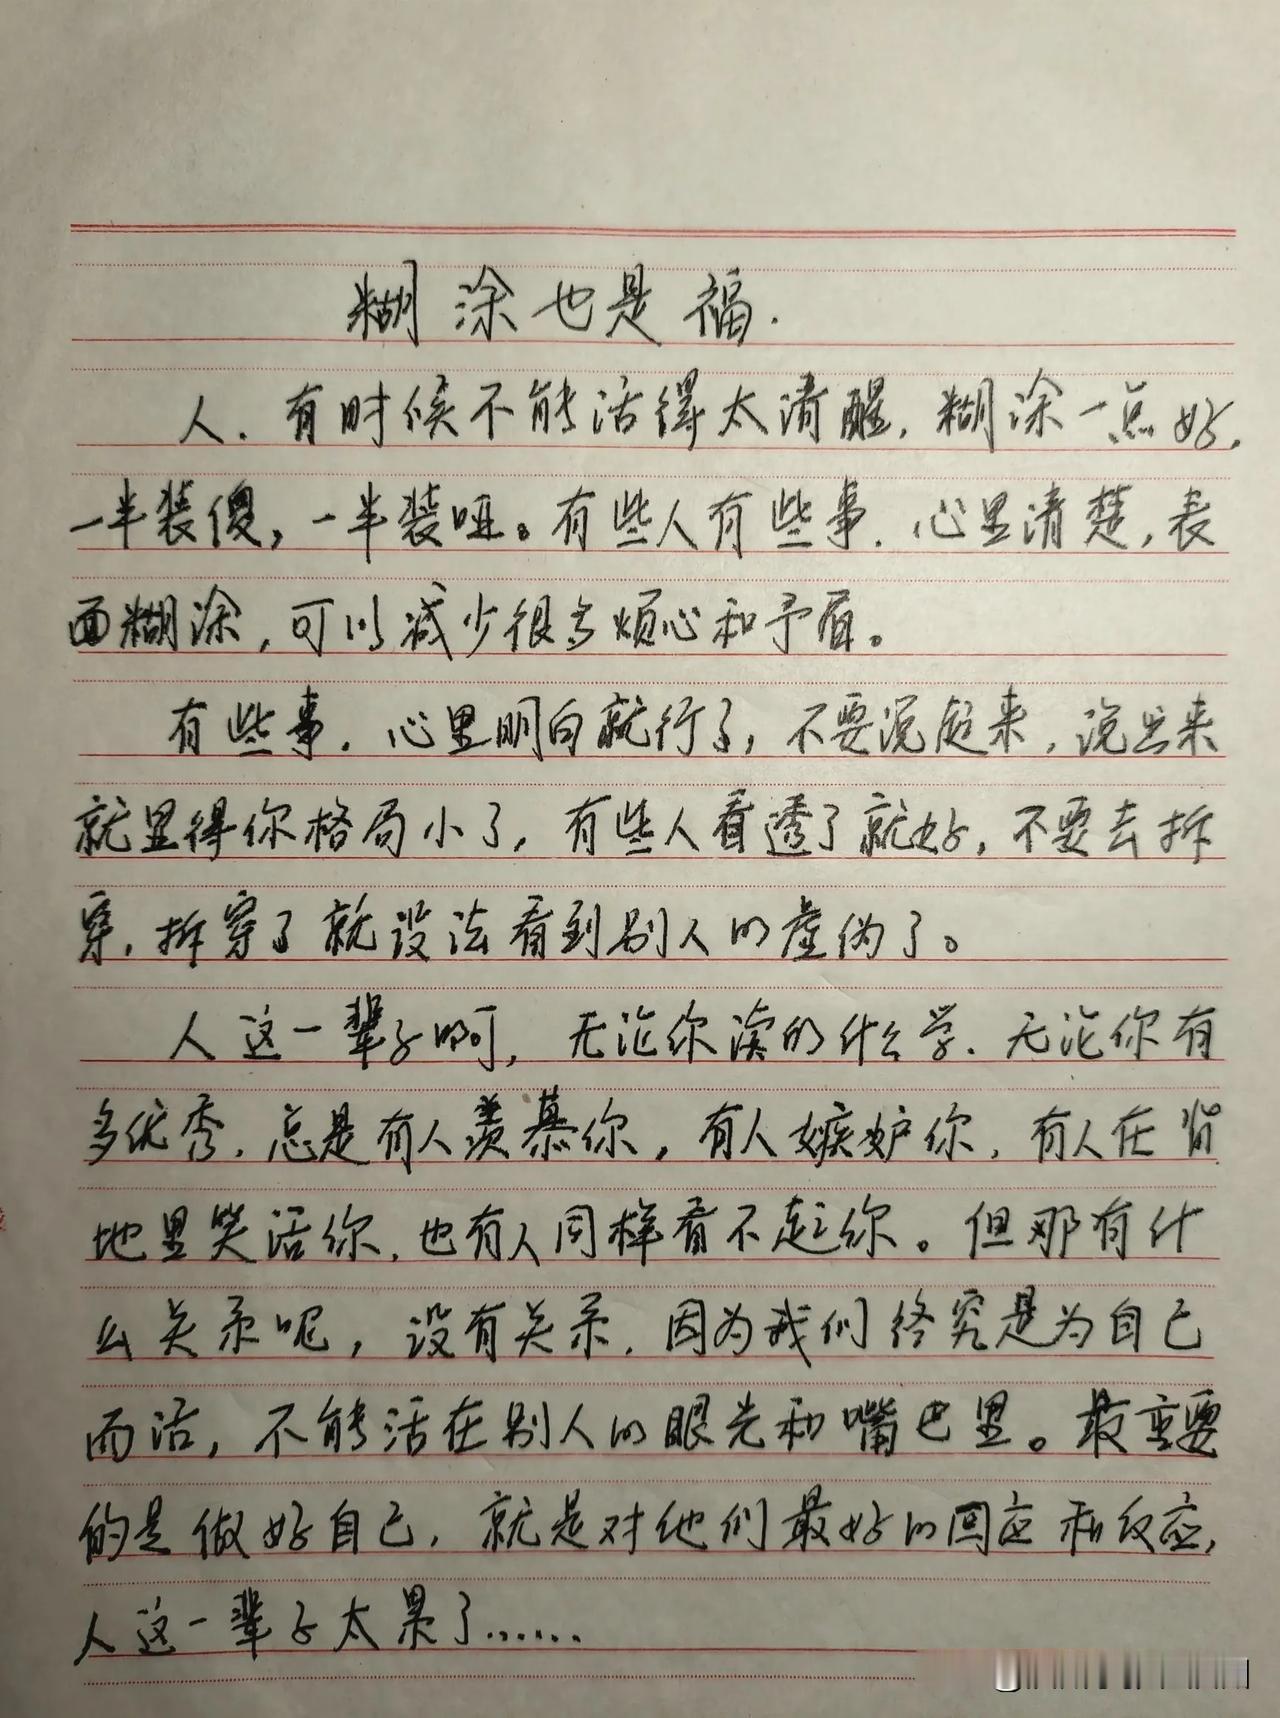 糊涂也是福.
人.有时候不能活得太清醒,糊涂一点好,
一半装傻,一半装哑。有些人有些事.心里清楚,表
面糊涂,可以减少很多烦心和矛盾。
有些事.心里明白就行了,不要说起来,说出来
就显得你格局小了,有些人看透了就好,不要去拆
穿,拆穿了就没法看到别人的虚伪了。
人这一辈子啊,无论你读的什么学.无论你有
多优秀.总是有人羡慕你,有人嫉妒你,有人在背
地里笑话你,也有人同样看不起你。但那有什
么关系呢,没有关系.因为我们终究是为自己
而活,不能活在别人的眼光和嘴巴里。最重要
的是做好自己,就是对他们最好的回应和反应,
人这一辈子太累了......